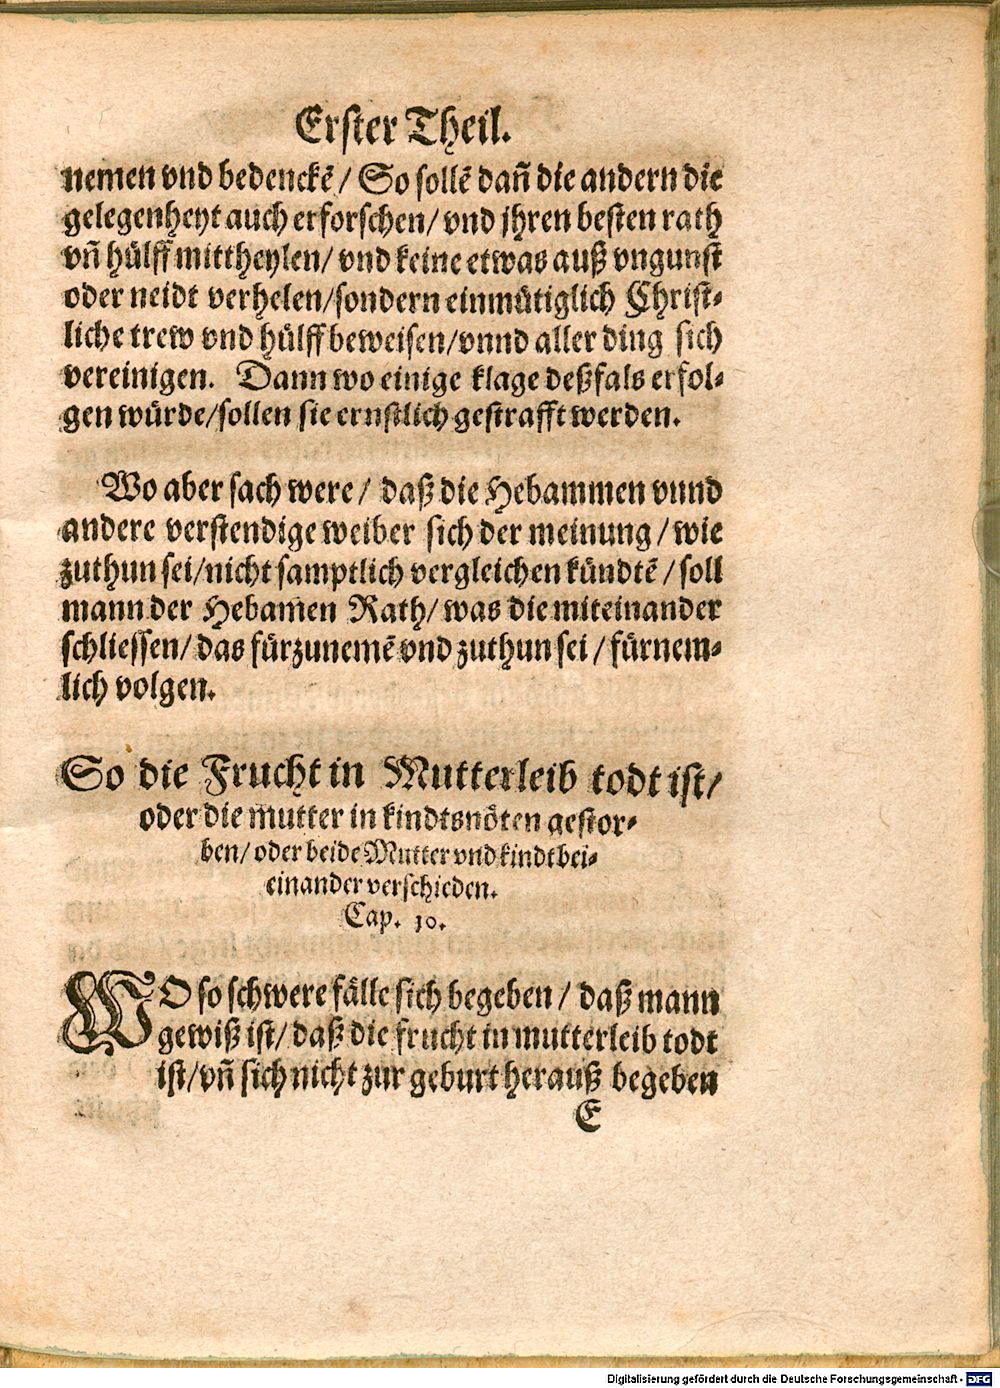 Erster Theil.
nemen vnd bedenckẽ / So sollẽ dañ die andern die
gelegenheyt auch erforschen / vnd jhren besten rath
vñ hülff mittheylen / vnd keine etwas auß vngunst
oder neidt verhelen / sondern einmütiglich Christ-
liche trew vnd hülff beweisen / vnnd aller ding sich
vereinigen. Dann wo einige klage deßfals erfol-
gen würde / sollen sie ernstlich gestrafft werden.
Wo aber sach were / daß die Hebammen vnnd
andere verstendige weiber sich der meinung / wie
zuthun sei / nicht samptlich vergleichen kündtẽ / soll
mann der Hebam̃en Rath / was die miteinander
schliessen / das fürzunemẽ vnd zuthun sei / fürnem-
lich volgen.
So die Frucht in Mutterleib todt ist /
oder die mutter in kindtsnöten gestor-
ben / oder beide Mutter vnd kindt bei-
einander verschieden.
Cap. 10.
WO so schwere fälle sich begeben / daß mann
gewiß ist / daß die frucht in mutterleib todt
ist / vñ sich nicht zur geburt herauß begeben
E
Digitalisierung gefördert durch die Deutsche Forschungsgemeinschaft - DFG